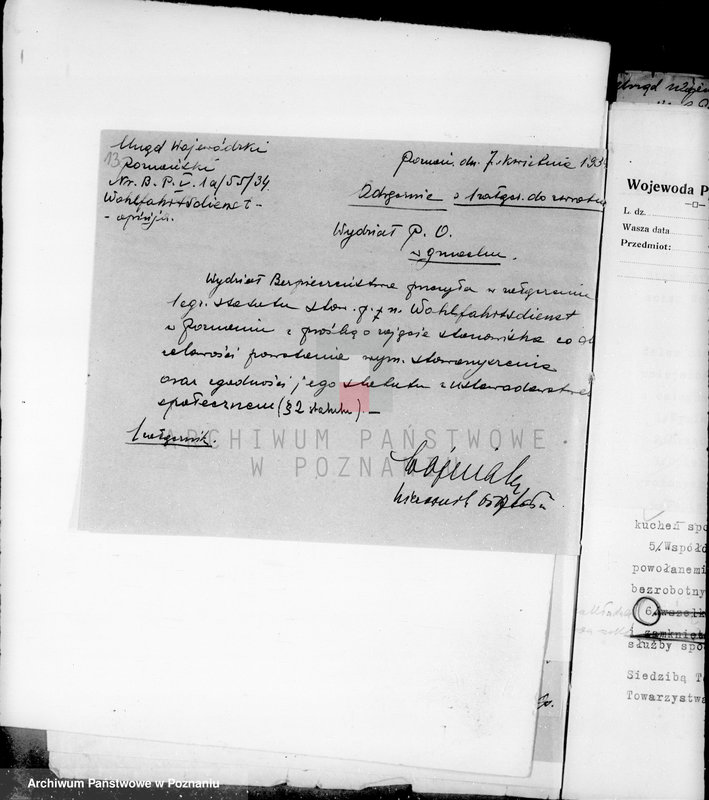 Urząd Wojewódzki
13 Poznański
Nr. B. P. V. 1a/55/34
Wohlfahrtsdienst -
- opinja.
Poznań, dn. 7. kwietnia 193
Odręcznie z 1 załącz. do zwrotu
Wydział P. O.
w gmachu.
Wydział Bezpieczeństwa przesyła w załączeniu
1 egz. statutu stow. p. n. Wohlfahrtsdienst
w Poznaniu z prośbą o zajęcie stanowiska co do
celowości powołania wym. stowarzyszenia
oraz zgodności jego statutu z ustawodawstwem
społecznem (§ 2 statutu). —
1 załącznik.
ARCHIWUM PAŃSTWOWE
W POZNANIU
Wojewoda P
L. dz.
Wasza data
Przedmiot:
kuchen spo
5/.Współd
powołanemi
bezrobotny
6/.wszelk
i zamknięt
służby spo
Siedzibą To
Towarzystwa
Archiwum Państwowe w Poznaniu